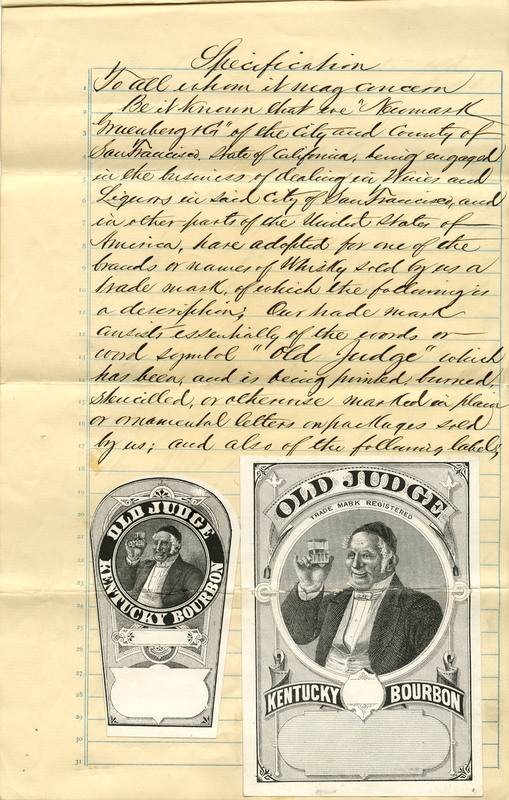 Specification
To all whom it may concern
Be it Known that we "Neumark
Gruenberg & Co" of the City and County of
San Francisco, State of California, being engaged
in the business of dealing in Wines and
Liquors in said City of San Francisco, and
in other parts of the United States of
America, have adopted for one of the
brands or names of Whisky sold by us a
trade mark, of which the following is
a description; Our trade mark
consists essentially of the words or
word symbol "Old Judge" which
has been, and is being printed, burned,
stencilled, or otherwise marked in plain
or ornamental letters on packages sold
by us; and also of the following labels,
OLD JUDGE
KENTUCKY BOURBON
OLD JUDGE
TRADE MARK REGISTERED
KENTUCKY BOURBON
1
2
3
4
5
6
7
8
9
10
11
12
13
14
15
16
17
18
19
20
21
22
23
24
25
27
28
29
30
31